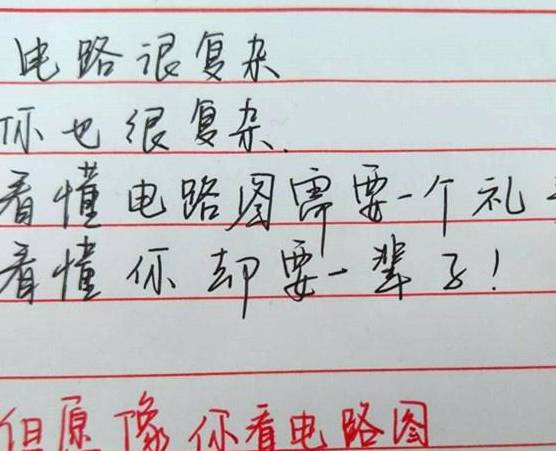 电路很复杂
你也很复杂.
看懂电路图需要一个礼
看懂你却要一辈子!
但愿像你看电路图